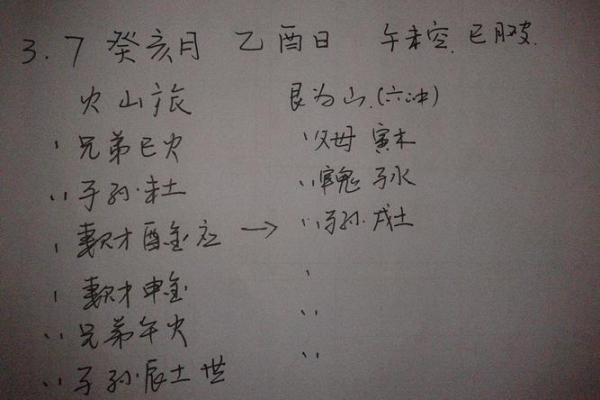 3.7 癸亥月 乙酉日 午未空. 巳月破.
火山旅 艮为山.(六冲)
、兄弟巳火 、父母 寅木
、、子孙·未土 、、官鬼 子水
、妻财酉金应 → 、、子孙·戌土
、妻财申金 、
、、兄弟午火 、、
、、子孙·辰土世 、、